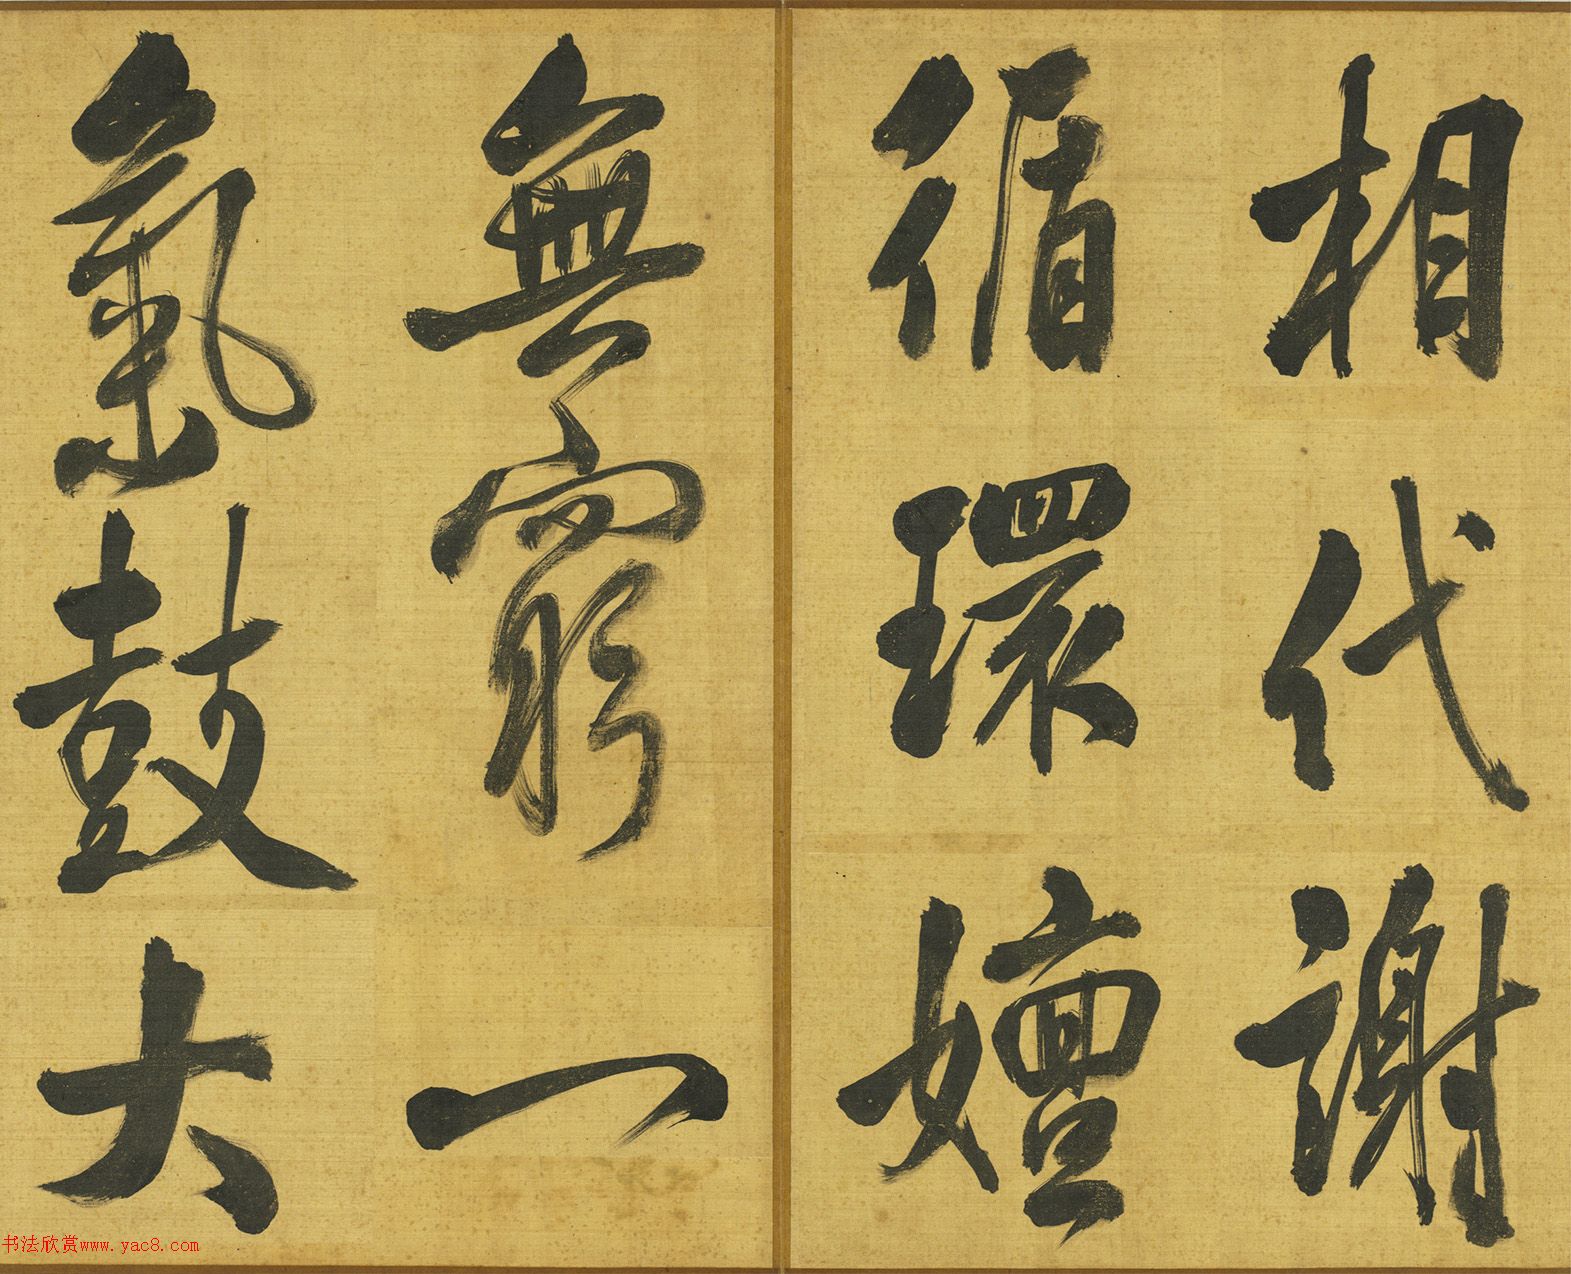 相代謝
循環嬗
無窮一
氣鼓大
书法欣赏www.yac8.com